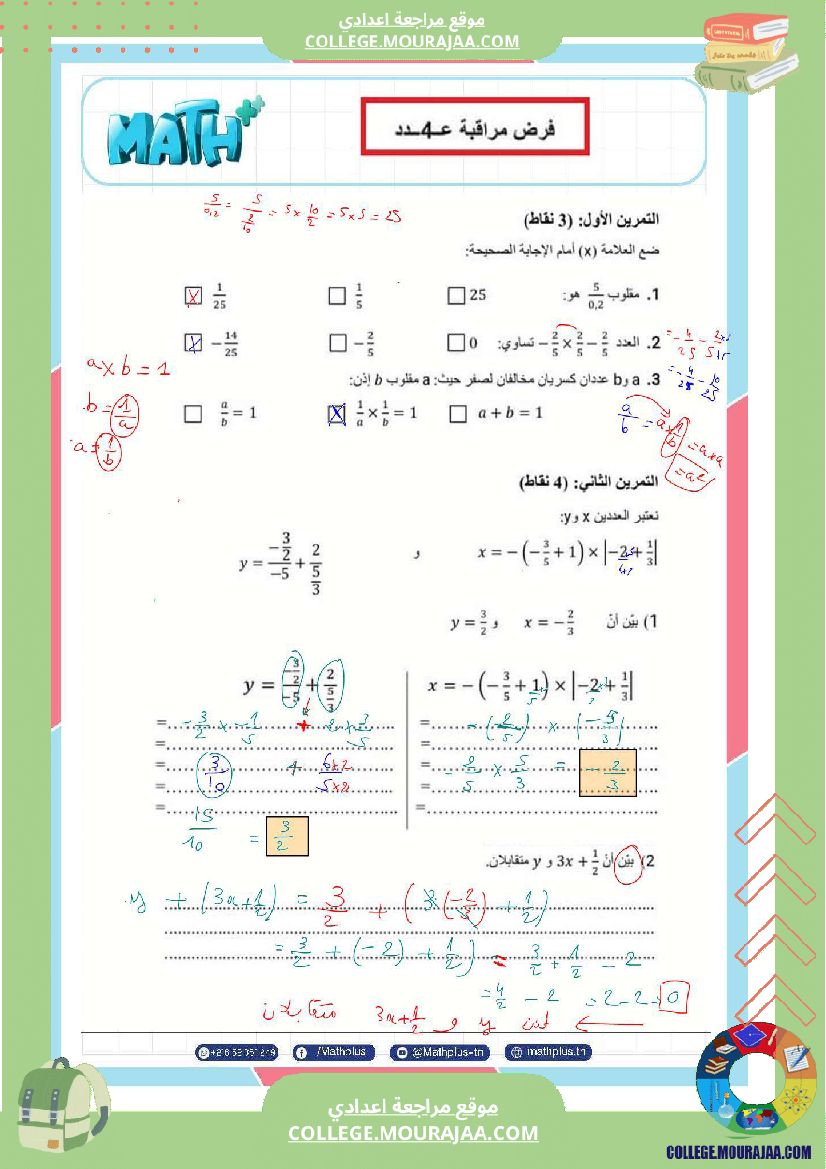 موقع مراجعة اعدادي
COLLEGE.MOURAJAA.COM
MATH
فرض مراقبة عـ4ـدد
5/0,2 = 5/(2/10) = 5 × 10/2 = 5 × 5 = 25
التمرين الأول: (3 نقاط)
ضع العلامة (x) أمام الإجابة الصحيحة:
1. مقلوب 5/0,2 هو: ☐ 25 ☐ 1/5 ☒ 1/25
2. العدد −2/5 × 2/5 − 2/5 تساوي: ☐ 0 ☐ −2/5 ☒ −14/25
= −4/25 − 2×5/5×5
= −4/25 − 10/25
3. a وb عددان كسريان مخالفان لصفر حيث: a مقلوب b إذن:
☐ a + b = 1 ☒ 1/a × 1/b = 1 ☐ a/b = 1
a × b = 1
b = 1/a
a = 1/b
a/b = a × 1/b = a×a
= a²
التمرين الثاني: (4 نقاط)
نعتبر العددين x وy:
x = −(−3/5 + 1) × |−2 + 1/3| و y = (−3/2)/(−5) + 2/(5/3)
1) بيّن أنّ x = −2/3 و y = 3/2
x = −(−3/5 + 1) × |−2 + 1/3|
= −(2/5) × (−5/3)
=
= −2/5 × 5/3 = −2/3
=
y = (−3/2)/(−5) + 2/(5/3)
= −3/2 × −1/5 + 2 × 3/5
=
= 3/10 + 6×2/5×2
=
15/10 = 3/2
2) بيّن أنّ 3x + 1/2 و y متقابلان.
y + (3x + 1/2) = 3/2 + (3(−2/3) + 1/2)
= 3/2 + (−2) + 1/2) = 3/2 + 1/2 − 2
= 4/2 − 2 = 2 − 2 = 0
اذن y و 3x + 1/2 متقابلان
+216 52 351 249
/Mathplus
@Mathplus-tn
mathplus.tn
موقع مراجعة اعدادي
COLLEGE.MOURAJAA.COM
COLLEGE.MOURAJAA.COM